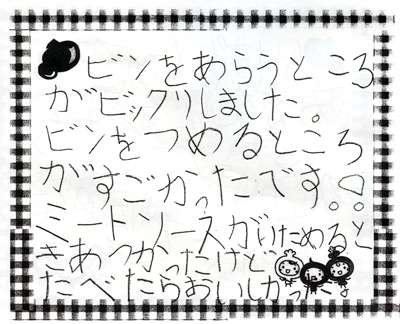 ビンをあらうところ
がビックリしました。
ビンをつめるところ
がすごかったです。
ミートソースがいためると
きあつかったけど
たべたらおいしかった。